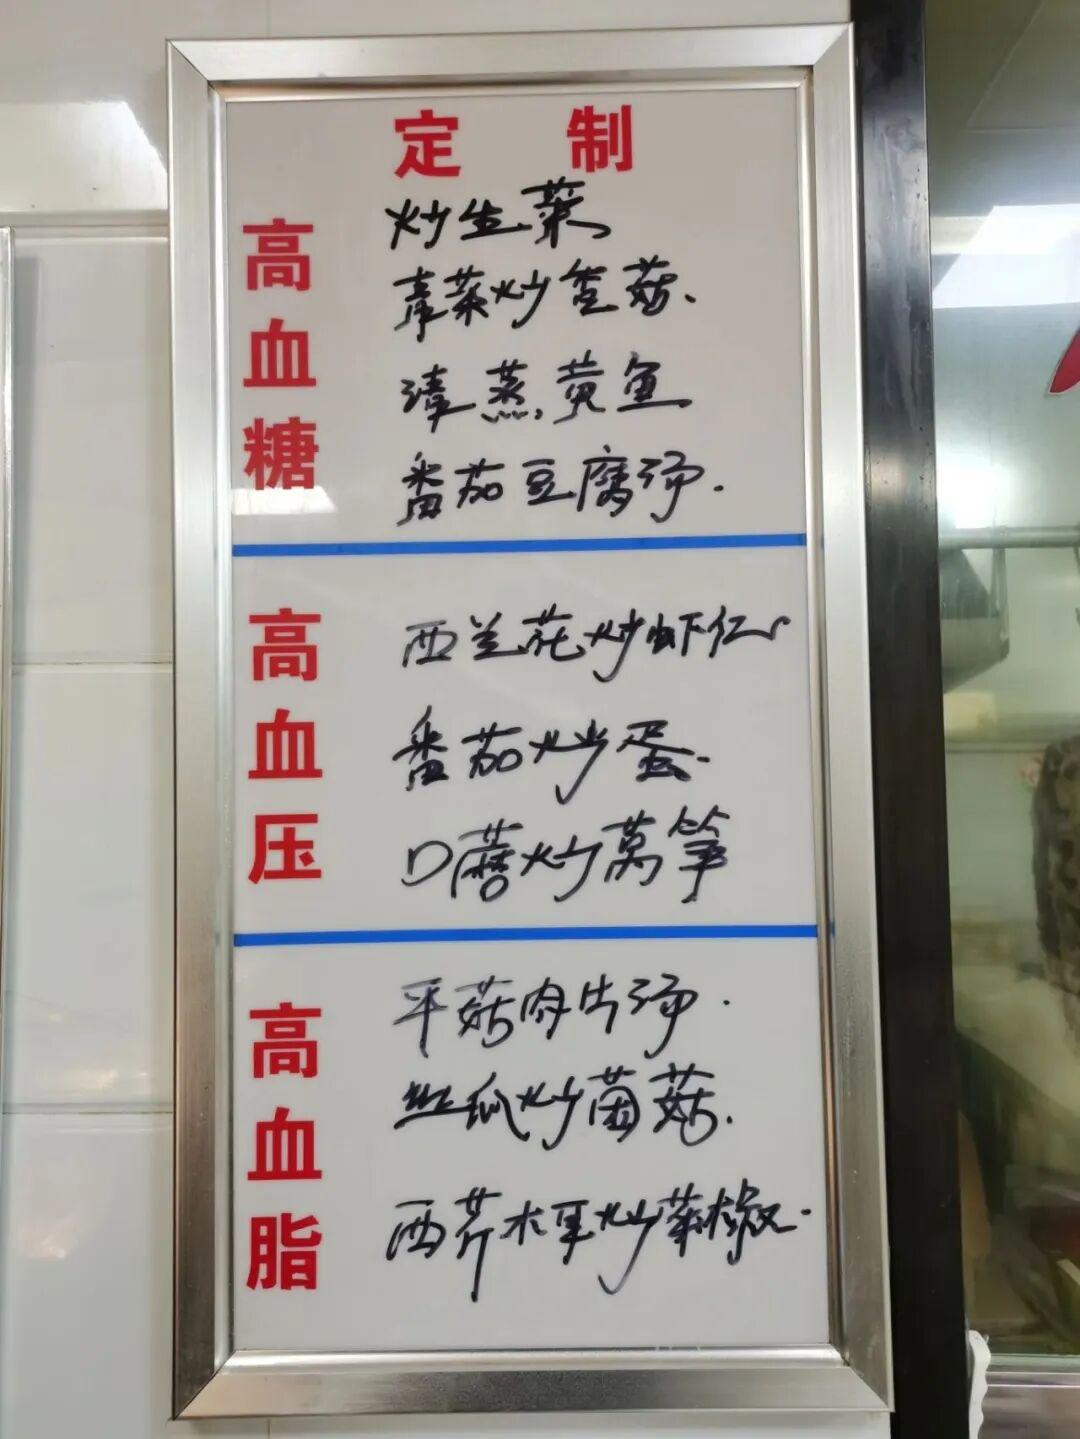 定制
高血糖
炒生菜
青菜炒香菇.
清蒸黄鱼
番茄豆腐汤.
高血压
西兰花炒虾仁
番茄炒蛋.
口蘑炒莴笋
高血脂
平菇肉片汤.
丝瓜炒菌菇.
西芹木耳炒菜椒.